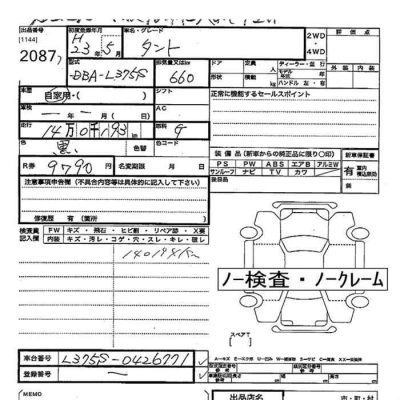 出品番号
[1144]
2087
初度登録年月
H
23年5月
車名・グレード
タント
2WD
・
4WD
評価点
外装 内装
型式
DBA-L375S
排気量又はkw
660
ドア
形状
定員
人
積載
ディーラー・並行
モデル年式
ハンドル 左・右
車歴
自家用・( )
シフト
正常に機能するセールスポイント
車検
年 月
AC
走行
14万0千193km
燃料
G
色
黒
色替
色コード
装備品(新車からの純正品に限り〇印)
新車保証書
PS PW ABS エアB アルミW
サンルーフ ナビ TV カワ
有
R券
9790円
名変期限 月 日
後装品
注意事項申告欄 (不具合内容等は具体的に記入して下さい)
修復歴 有 (箇所 )
検査員記入欄
FW キズ・飛石・ヒビ割・リペア跡・X要
内装 キズ・汚レ・コゲ・穴・スレ・キレ・破レ
140194K
ノー検査・ノークレーム
スペアT
車台番号
L375S-0426771
登録番号
MEMO
出品店名
市・町・村